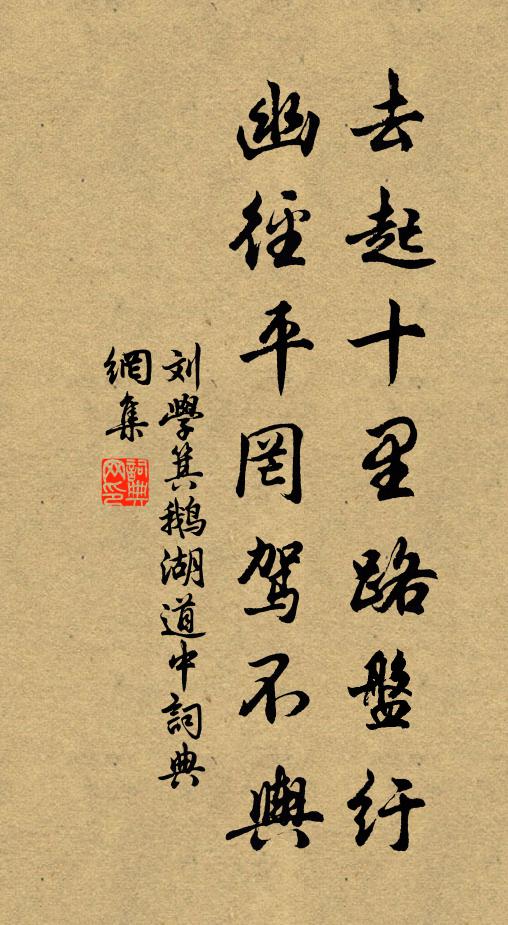 去起十里路盤紆
幽徑平罔駕不輿
刘學箕鵝湖道中詞典
網集
詞典網印